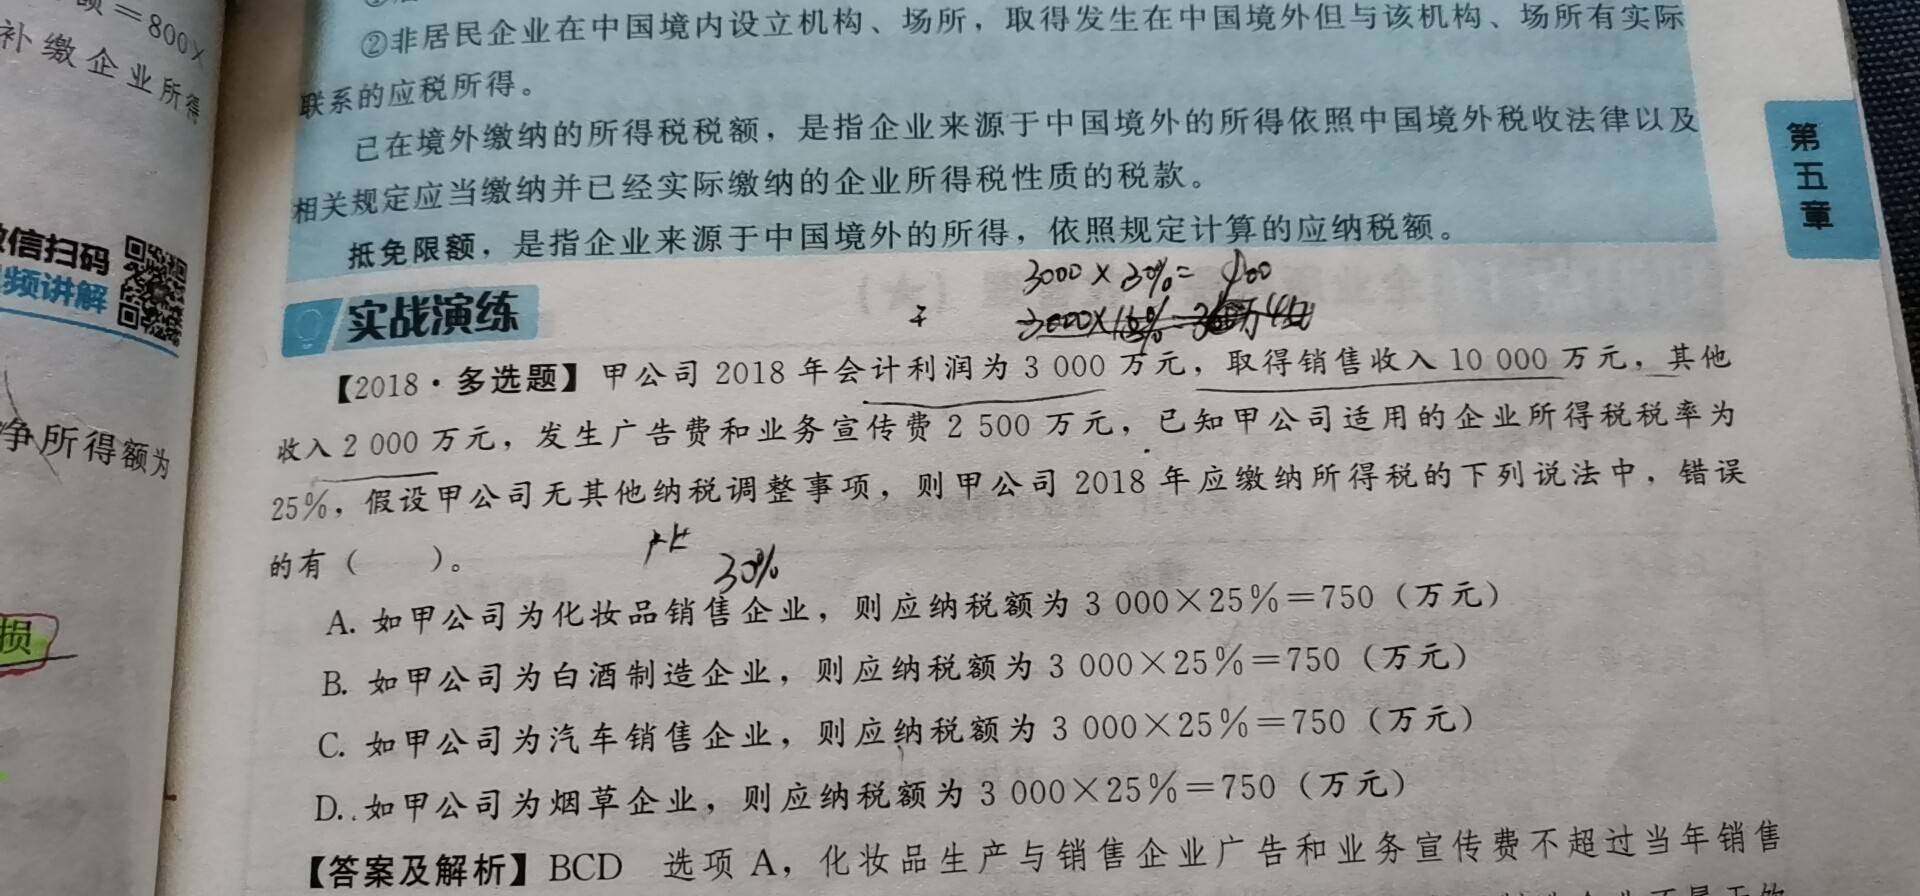 额=800×
补缴企业所得
微信扫码
频讲解
净所得额为
损
②非居民企业在中国境内设立机构、场所，取得发生在中国境外但与该机构、场所有实际
联系的应税所得。
已在境外缴纳的所得税税额，是指企业来源于中国境外的所得依照中国境外税收法律以及
相关规定应当缴纳并已经实际缴纳的企业所得税性质的税款。
抵免限额，是指企业来源于中国境外的所得，依照规定计算的应纳税额。
第五章
3000×30%=900
3000×15%=
实战演练
【2018·多选题】甲公司 2018 年会计利润为 3 000 万元，取得销售收入 10 000 万元，其他
收入 2 000 万元，发生广告费和业务宣传费 2 500 万元，已知甲公司适用的企业所得税税率为
25%，假设甲公司无其他纳税调整事项，则甲公司 2018 年应缴纳所得税的下列说法中，错误
的有（　　）。
30%
A. 如甲公司为化妆品销售企业，则应纳税额为 3 000×25%=750（万元）
B. 如甲公司为白酒制造企业，则应纳税额为 3 000×25%=750（万元）
C. 如甲公司为汽车销售企业，则应纳税额为 3 000×25%=750（万元）
D. 如甲公司为烟草企业，则应纳税额为 3 000×25%=750（万元）
【答案及解析】BCD　选项 A，化妆品生产与销售企业广告和业务宣传费不超过当年销售